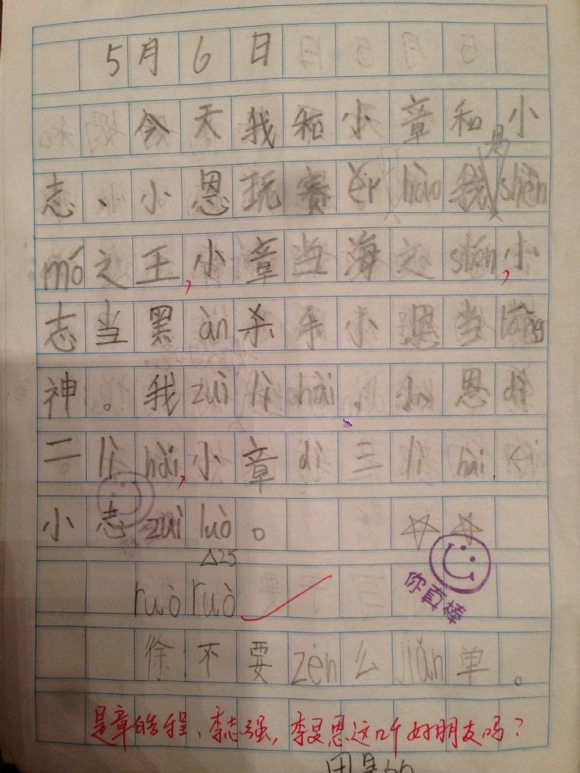 5月6日
今天我和小章和小
志、小恩玩赛èr hào我是shén
mó之王,小章当海之shén,小
志当黑àn杀手小恩当lāng
神。我zuì lì hài,小恩dì
二lì hài,小章dì三lì hài.
小志zuì luò。
△25
ruò ruò
你真棒
徐不要zèn么jiǎn单。
是章皓程、李志强,李旻恩这几个好朋友吗?